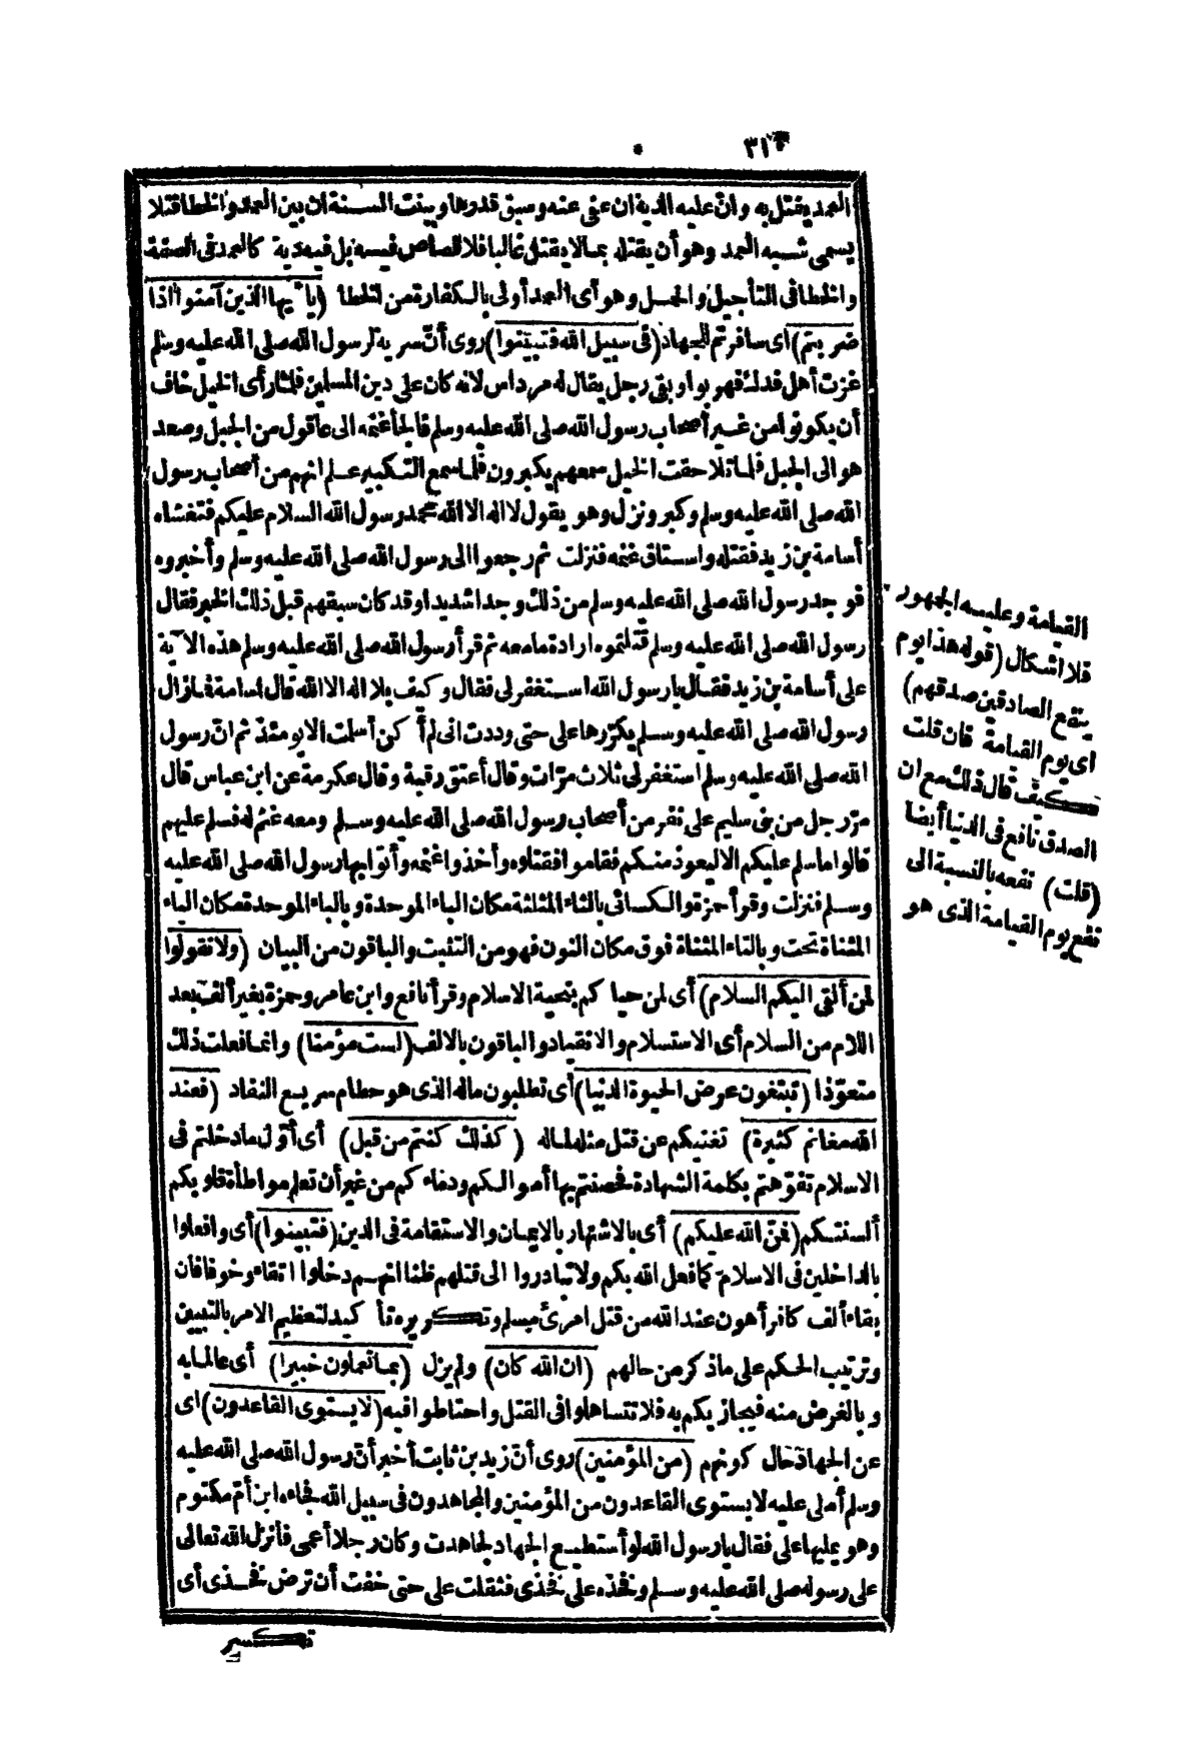 ٣١٦
العمد يقتل به وان عليه الدية ان عفى عنه وسبق قدرها وبينت السنة ان بين العمد والخطا قتلا
يسمى شبه العمد وهو أن يقتله بمالا يقتل غالبا فلا قصاص فيه بل فيه دية كالعمد فى الصفة
والخطا فى التأجيل والحمل وهو أى العمد أولى بالكفارة من الخطا (يا أيها الذين آمنوا اذا
ضربتم) اى سافرتم للجهاد (فى سبيل الله فتبينوا) روى أنّ سرية لرسول الله صلى الله عليه وسلم
غزت أهل فدك فهربوا وبقى رجل يقال له مرداس لانه كان على دين المسلمين فلما رأى الخيل خاف
أن يكونوا من غير أصحاب رسول الله صلى الله عليه وسلم فالجأ غنمه الى عاقول من الجبل وصعد
هو الى الجبل فلما تلاحقت الخيل سمعهم يكبرون فلما سمع التكبير علم انهم من أصحاب رسول
الله صلى الله عليه وسلم وكبر ونزل وهو يقول لا اله الا الله محمد رسول الله السلام عليكم فتغشاه
أسامة بن زيد فقتله واستاق غنمه فنزلت ثم رجعوا الى رسول الله صلى الله عليه وسلم وأخبروه
فوجد رسول الله صلى الله عليه وسلم من ذلك وجدا شديدا وقد كان سبقهم قبل ذلك الخبر فقال
رسول الله صلى الله عليه وسلم قتلتموه ارادة مامعه ثم قرأ رسول الله صلى الله عليه وسلم هذه الآية
على أسامة بن زيد فقال يا رسول الله استغفر لى فقال وكيف بلا اله الا الله قال اسامة فما زال
رسول الله صلى الله عليه وسلم يكرّرها على حتى وددت انى لم أكن أسلمت الا يومئذ ثم ان رسول
الله صلى الله عليه وسلم استغفر لى ثلاث مرّات وقال أعتق رقبة وقال عكرمة عن ابن عباس قال
مرّ رجل من بنى سليم على نفر من أصحاب رسول الله صلى الله عليه وسلم ومعه غنم له فسلم عليهم
قالوا ماسلم عليكم الا ليعوذ منكم فقاموا فقتلوه وأخذوا غنمه وأتوا بها رسول الله صلى الله عليه
وسلم فنزلت وقرأ حمزة والكسائى بالثاء المثلثة مكان الباء الموحدة وبالباء الموحدة مكان الياء
المثناة تحت وبالتاء المثناة فوق مكان النون فهو من التثبت والباقون من البيان (ولا تقولوا
لمن ألقى اليكم السلام) أى لمن حياكم بتحية الاسلام وقرأ نافع وابن عامر وحمزة بغير ألف بعد
اللام من السلام أى الاستسلام والانقياد والباقون بالالف (لست مؤمنا) وانما فعلت ذلك
متعوّذا (تبتغون عرض الحيوة الدنيا) أى تطلبون ماله الذى هو حطام سريع النفاد (فعند
الله مغانم كثيرة) تغنيكم عن قتل مثله لماله (كذلك كنتم من قبل) أى أوّل مادخلتم فى
الاسلام تفوّهتم بكلمة الشهادة فحصنتم بها أموالكم ودماءكم من غير أن تعلم مواطأة قلوبكم
ألسنتكم (فمنّ الله عليكم) أى بالاشتهار بالايمان والاستقامة فى الدين (فتبينوا) أى وافعلوا
بالداخلين فى الاسلام كما فعل الله بكم ولا تبادروا الى قتلهم ظنا انهم دخلوا اتقاء وخوفا فان
بقاء ألف كافر أهون عند الله من قتل امرئ مسلم وتكريره تأكيد لتعظيم الامر بالتبيين
وترتيب الحكم على ماذكر من حالهم (ان الله كان) ولم يزل (بما تعملون خبيرا) أى عالما به
وبالغرض منه فيجازيكم به فلا تتساهلوا فى القتل واحتاطوا فيه (لا يستوى القاعدون) اى
عن الجهاد حال كونهم (من المؤمنين) روى أن زيد بن ثابت أخبر أن رسول الله صلى الله عليه
وسلم أملى عليه لا يستوى القاعدون من المؤمنين والمجاهدون فى سبيل الله فجاءه ابن أم مكتوم
وهو يمليها على فقال يا رسول الله لو أستطيع الجهاد لجاهدت وكان رجلا أعمى فأنزل الله تعالى
على رسوله صلى الله عليه وسلم وفخذه على فخذى فثقلت على حتى خفت أن ترض فخذى أى
تكسير
القيامة وعليه الجمهور
فلا اشكال (قوله هذا يوم
ينفع الصادقين صدقهم)
اى يوم القيامة فان قلت
كيف قال ذلك مع ان
الصدق نافع فى الدنيا أيضا
(قلت) نفعه بالنسبة الى
نفع يوم القيامة الذى هو